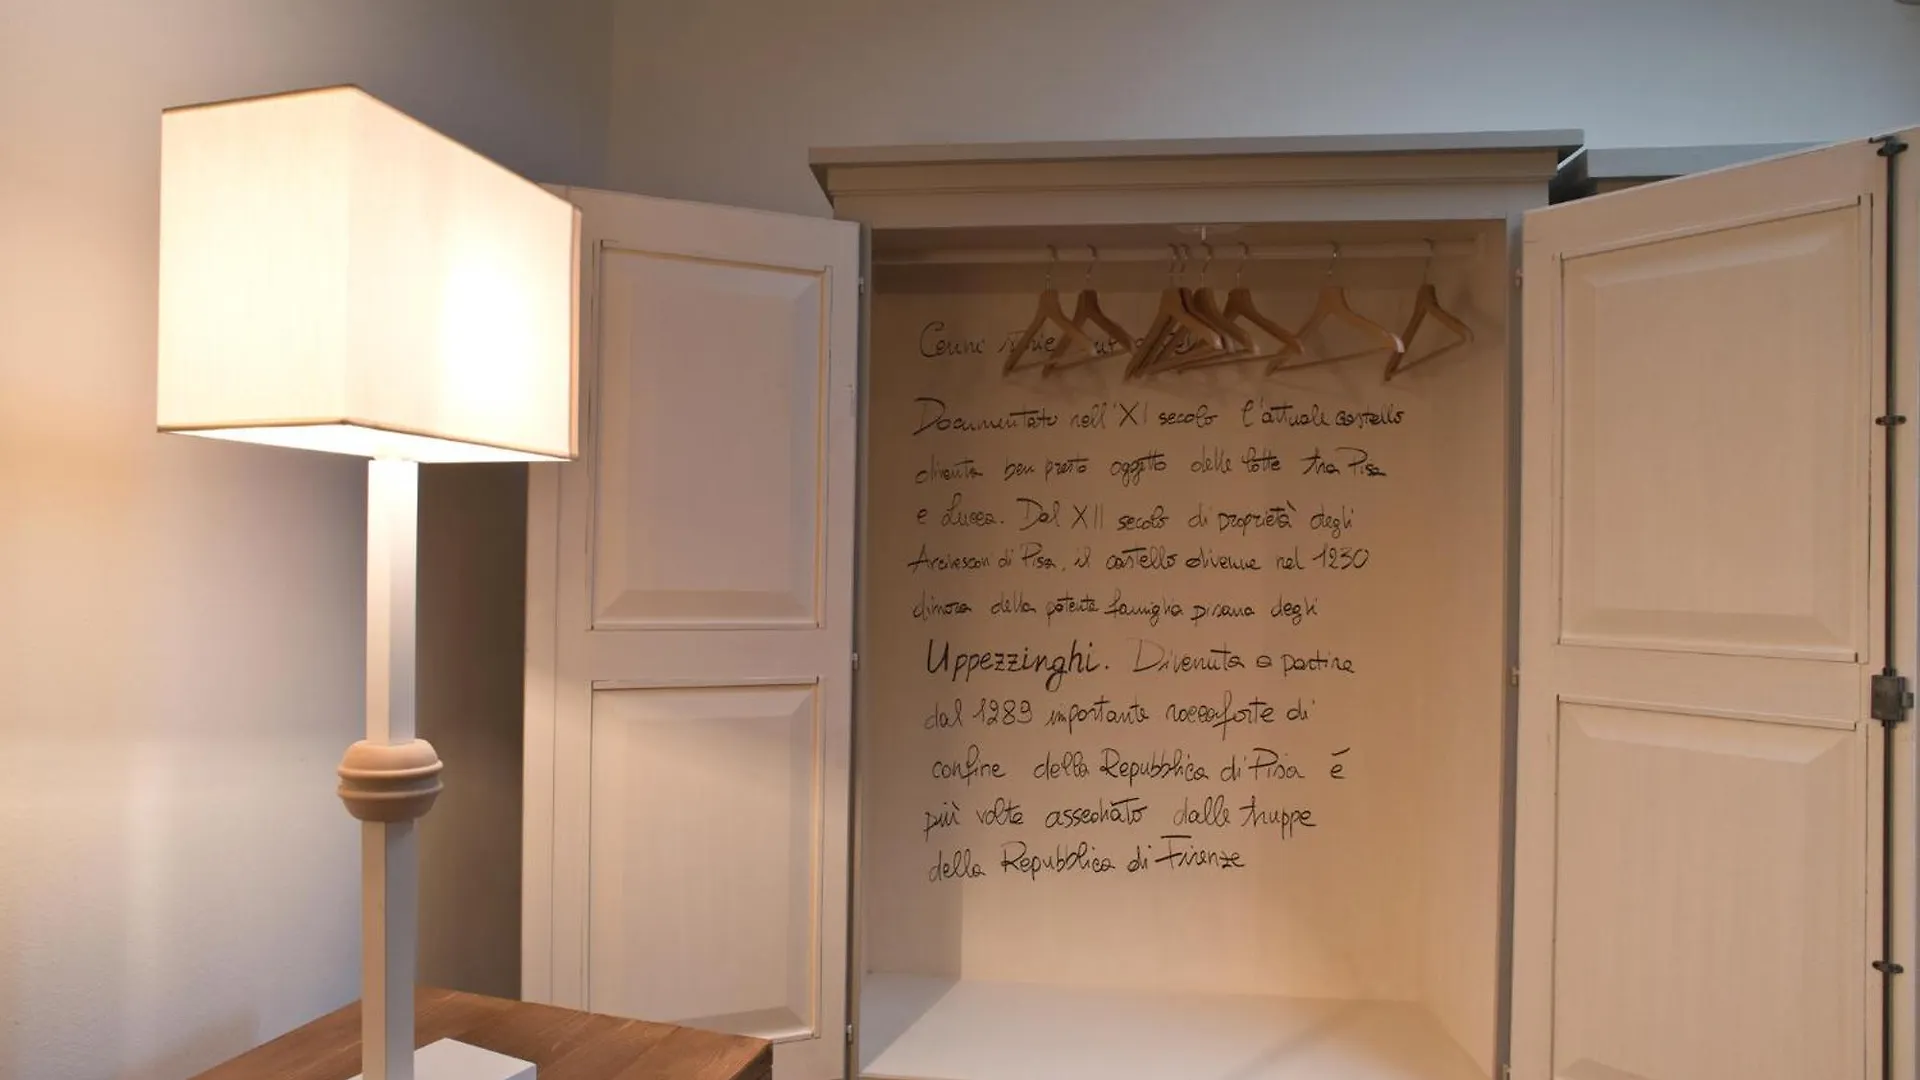 Cenni
Documentato nell'XI secolo l'attuale castello
diventa ben presto oggetto delle lotte tra Pisa
e Lucca. Dal XII secolo di proprietà degli
Arcivescovi di Pisa, il castello divenne nel 1230
dimora della potente famiglia pisana degli
Uppezzinghi. Divenuta a partire
dal 1289 importante roccaforte di
confine della Repubblica di Pisa é
più volte assediato dalle truppe
della Repubblica di Firenze